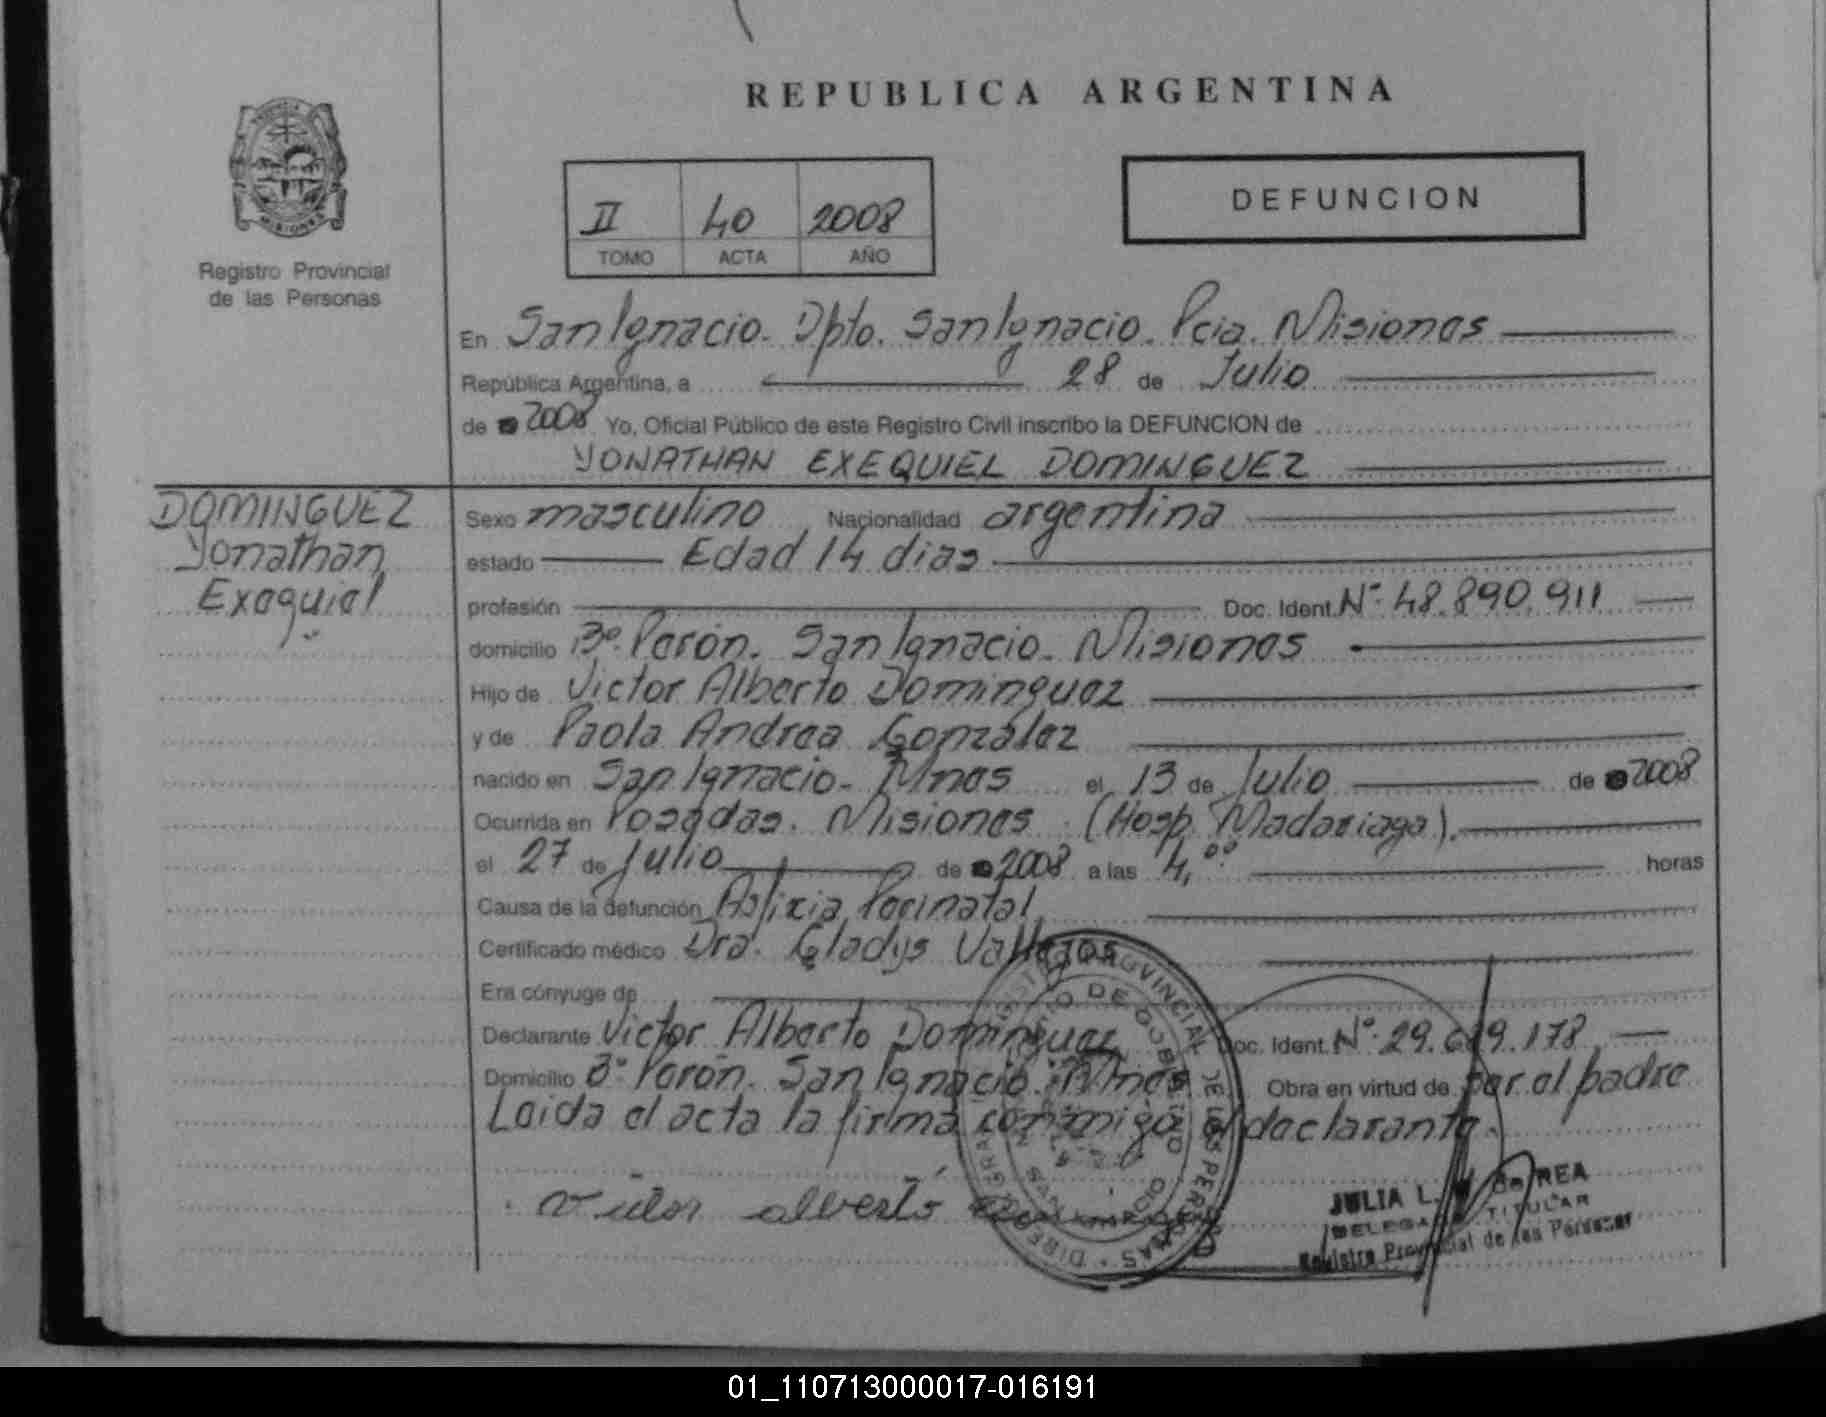 REPUBLICA ARGENTINA
MISIONES
Registro Provincial
de las Personas
II 40 2008
TOMO ACTA AÑO
DEFUNCION
En San Ignacio. Dpto. San Ignacio. Pcia. Misiones
República Argentina, a 28 de Julio
de 2008 Yo, Oficial Público de este Registro Civil inscribo la DEFUNCION de
YONATHAN EXEQUIEL DOMINGUEZ
DOMINGUEZ
Yonathan
Exequiel
Sexo masculino Nacionalidad argentina
estado Edad 14 dias
profesión Doc. Ident. Nº 48.890.911
domicilio Bº Perón. San Ignacio. Misiones
Hijo de Victor Alberto Dominguez
y de Paola Andrea González
nacido en San Ignacio - Mnes el 13 de Julio de 2008
Ocurrida en Posadas. Misiones (Hosp. Madariaga).
el 27 de Julio de 2008 a las 4,00 horas
Causa de la defunción Asfixia Perinatal
Certificado médico Dra. Gladys Vallejos
Era cónyuge de
Declarante Victor Alberto Dominguez Doc. Ident. Nº 29.689.178
Domicilio Bº Perón. San Ignacio. Mnes Obra en virtud de ser el padre
Leida el acta la firma conmigo el declarante.
Victor alberto
JULIA L. de REA
DELEGADA TITULAR
Registro Provincial de las Personas
01_110713000017-016191